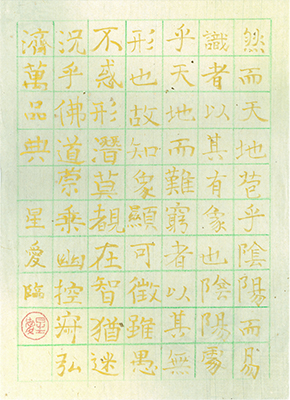 然而天地苞乎陰陽而易
識者以其有象也陰陽處
乎天地而難窮者以其無
形也故知象顯可徵雖愚
不惑形潛莫覩在智猶迷
況乎佛道崇乘幽控寂弘
濟萬品典 星愛臨